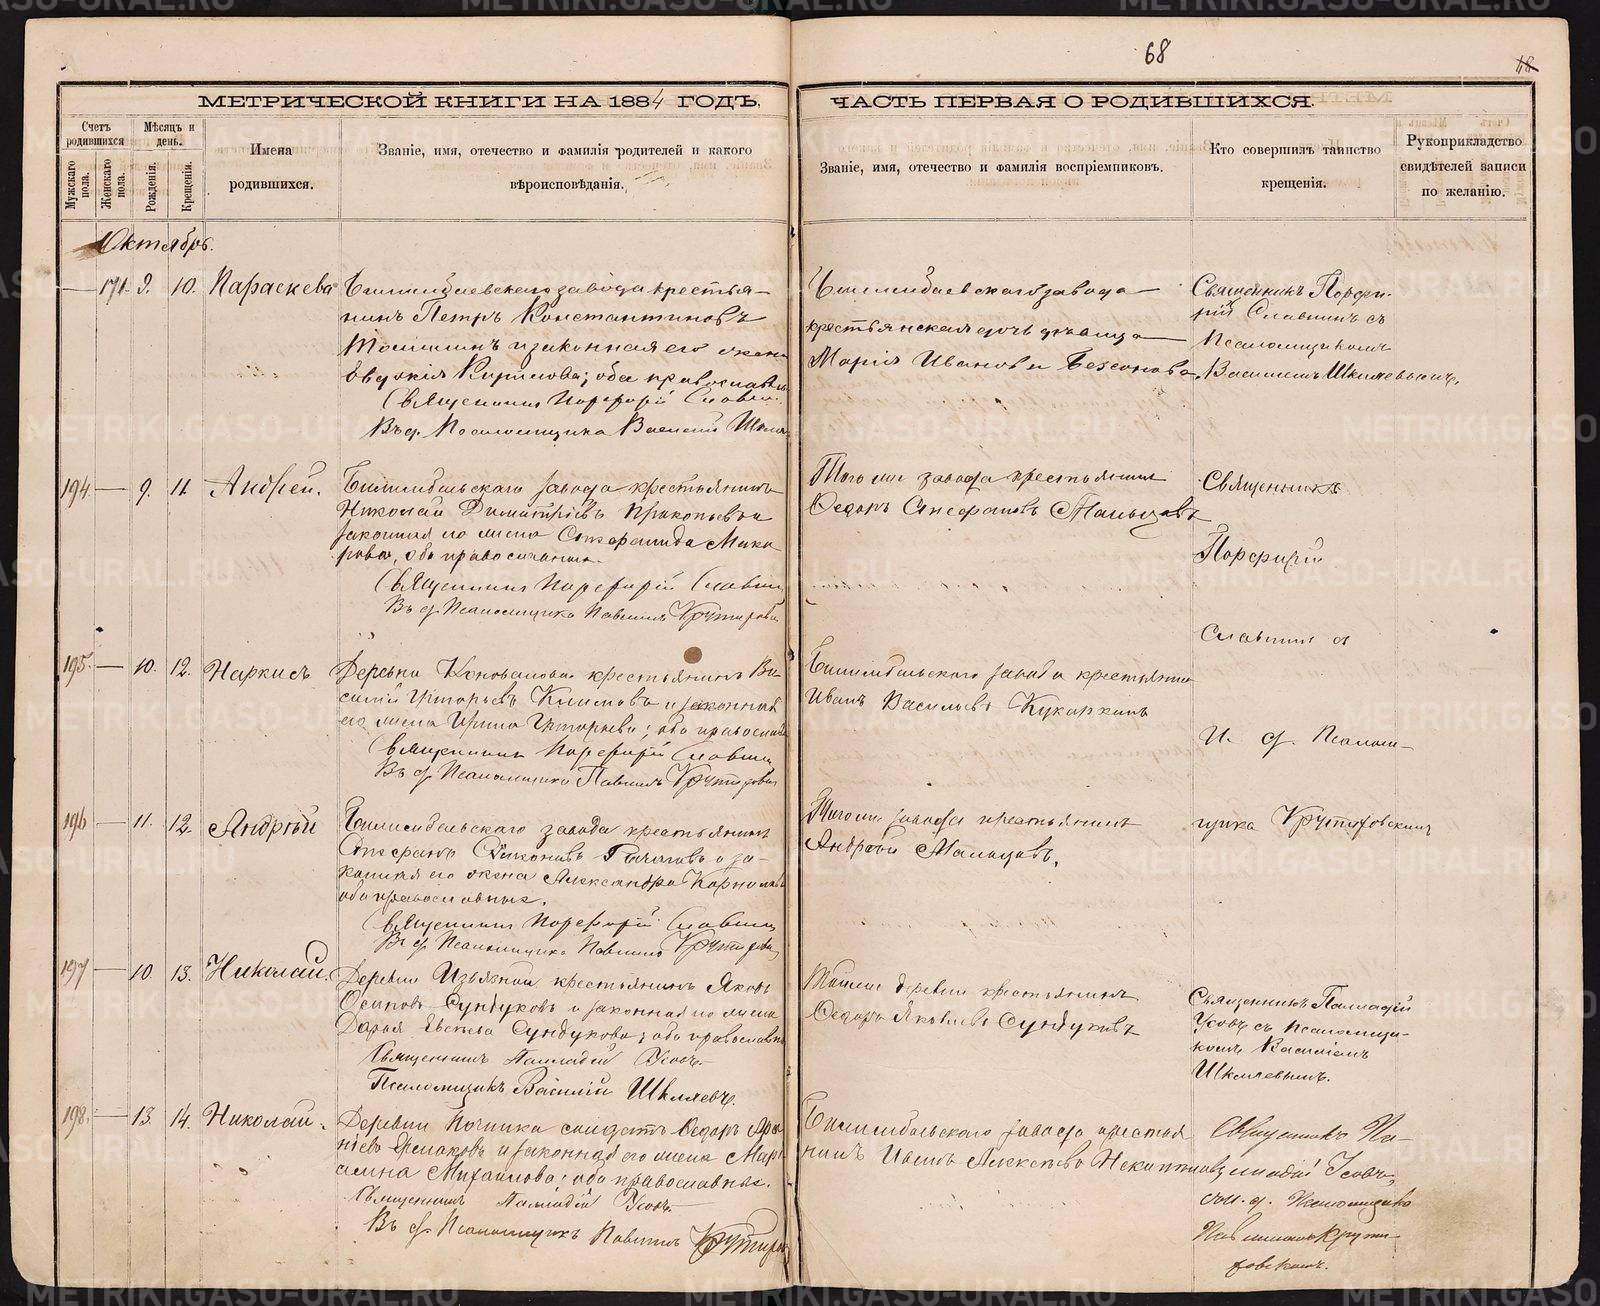 68
МЕТРИЧЕСКОЙ КНИГИ НА 1884 ГОДЪ,
ЧАСТЬ ПЕРВАЯ О РОДИВШИХСЯ.
Счетъ родившихся
Мужскаго пола.
Женскаго пола.
Мѣсяцъ и день.
Рожденія.
Крещенія.
Имена родившихся.
Званіе, имя, отечество и фамилія родителей и какого вѣроисповѣданія.
Званіе, имя, отечество и фамилія воспріемниковъ.
Кто совершилъ таинство крещенія.
Рукоприкладство свидѣтелей записи по желанію.
Октябрь.
171. 9. 10. Параскева
Билимбаевскаго завода крестья-
нинъ Петръ Константиновъ
и законная его жена
Евдокія Кирилова; оба православн
Священникъ Порфирій Славнин
Въ д. Псаломщика Василій Шкля
Билимбаевскаго завода
крестьянская дочь дѣвица
Марія Иванова Безсонова.
Священникъ Порфи-
рій Славнинъ съ
Псаломщикомъ
Василіемъ Шкляевымъ.
194 9. 11. Андрей.
Билимбаевскаго завода крестьянинъ
Николай Димитріевъ Прокопьевъ и
законная его жена Стефанида Мака
рова, оба православные.
Священникъ Порфирій Славнин
Въ д. Псаломщика Павлинъ Крутиховск
Того же завода крестьянинъ
Ѳедоръ Стефановъ Мальцевъ
Священникъ
Порфирій
Славнинъ и
И. д. Псалом-
щика Крутиховскій
195. 10. 12. Наркисъ
Деревни Коновалова крестьянинъ Ва
силій Григорьевъ Климовъ и законная
его жена Ирина Григорьева; оба православ
Священникъ Порфирій Славнин
Въ д. Псаломщика Павлинъ Крутиховск
Билимбаевскаго завода крестьянин
Иванъ Васильевъ Кукаркинъ
196 11. 12. Андрей
Билимбаевскаго завода крестьянинъ
Стефанъ и за-
конная его жена Александра Корнилова
оба православные.
Священникъ Порфирій Славнин
Въ д. Псаломщика Павлинъ Крутиховск
Того же завода крестьянинъ
Андрей Мальцевъ.
197 10. 13. Николай.
Деревни крестьянинъ Яковъ
Осиповъ Сундуковъ и законная его жена
Дарья Евсѣева Сундукова; оба православн
Священникъ Палладій Усовъ.
Псаломщикъ Василій Шкляевъ.
Тойже деревни крестьянинъ
Ѳедоръ Яковлевъ Сундуковъ
Священникъ Палладій
Усовъ съ Псаломщи-
комъ Василіемъ
Шкляевымъ.
198. 13. 14. Николай.
Деревни Починка солдатъ Ѳедоръ
Ермаковъ и законная его жена Мар
Михайлова; оба православные.
Священникъ Палладій Усовъ.
Въ д. Псаломщикъ Павлинъ Крутихов
Билимбаевскаго завода крестья
нинъ Иванъ Алексѣевъ
Священникъ Па-
ладій Усовъ,
съ и. д. Псаломщика
Павлиномъ Крути-
ховскимъ.